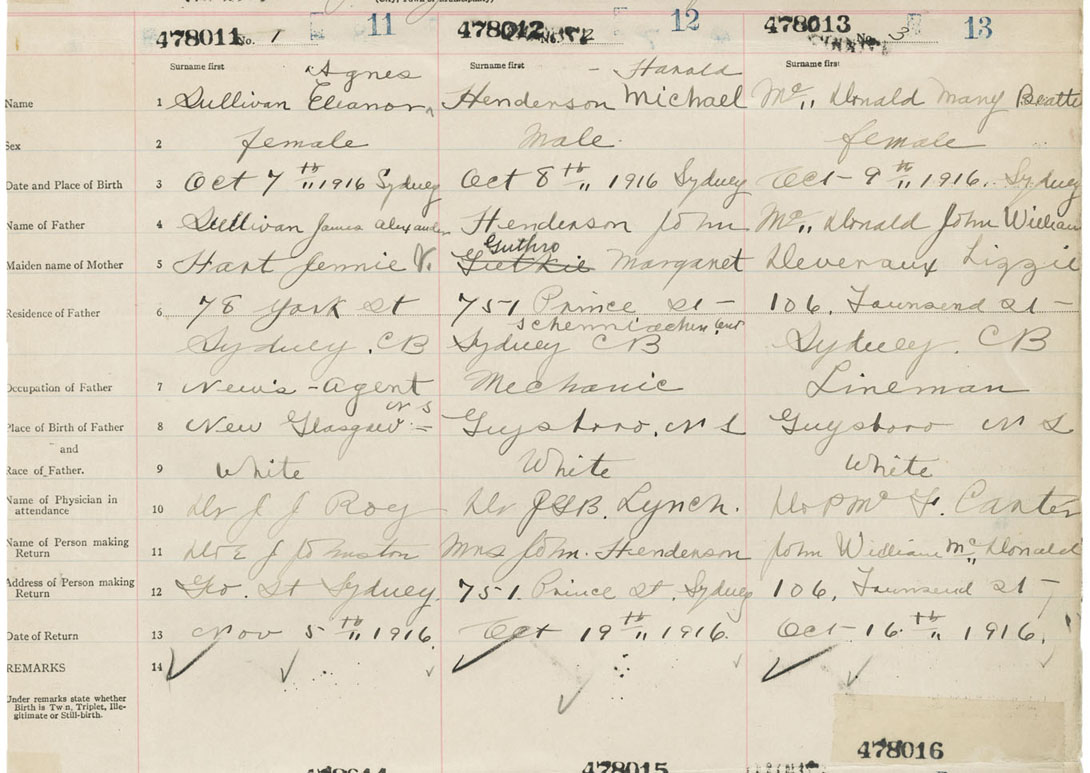 478011 No. 1 11 478012 12 478013 No. 3 13
Surname first Agnes Surname first - Harold Surname first
Name 1 Sullivan Eleanor ^ Henderson Michael Mc,, Donald Mary
Sex 2 female Male. female
Date and Place of Birth 3 Oct 7 th,, 1916 Sydney Oct 8 th,, 1916 Sydney Oct 9 th,, 1916. Sydney
Name of Father 4 Sullivan James Alexander Henderson John Mc,, Donald John William
Guthro
Maiden name of Mother 5 Hart Jennie V. Margaret Deveraux Lizzie
Residence of Father 6 78 York St 751 Prince St - 106, Townsend St -
Sydney. CB Sydney CB Sydney. CB
Occupation of Father 7 News-Agent Mechanic Lineman
N S
Place of Birth of Father 8 New Glasgow = Guysboro, N S Guysboro N S
and
Race of Father. 9 White White White
Name of Physician in
attendance 10 Dr J J Roy Dr Lynch. Dr
Name of Person making
Return 11 Dr E J Johnston Mrs John. Henderson John William Mc,, Donald
Address of Person making
Return 12 Geo. St Sydney. 751. Prince St. Sydney 106, Townsend St -
Date of Return 13 Nov 5 th,, 1916. Oct 19 th,, 1916. Oct 16. th,, 1916.
REMARKS 14
Under remarks state whether
Birth is Twin, Triplet, Ille-
gitimate or Still-birth.
478016
478015